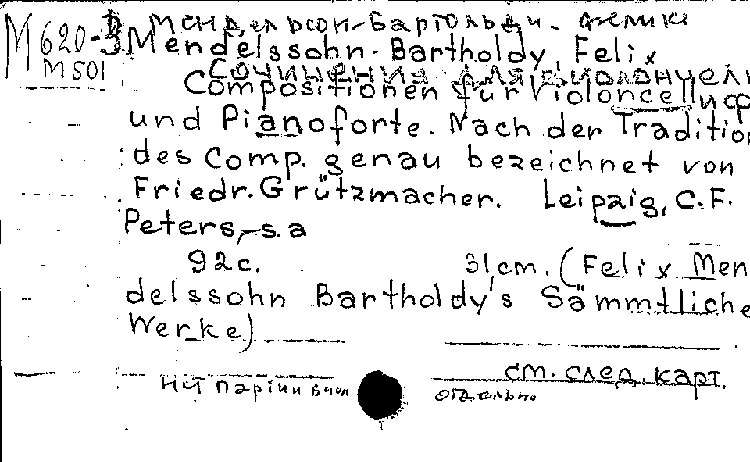 М620-3
M501
Мендельсон-Бартольди.
Mendelssohn-Bartholdy, Felix
Сочинения для виолончели
Compositionen für Violoncell
und Pianoforte. Nach der Tradition
des Comp. genau bezeichnet von
Friedr. Grützmacher. Leipzig, C.F.
Peters, s.a
92c. 31cm. (Felix Men
delssohn Bartholdy's Sämmtliche
Werke)
см. след. карт.
партии отдельно